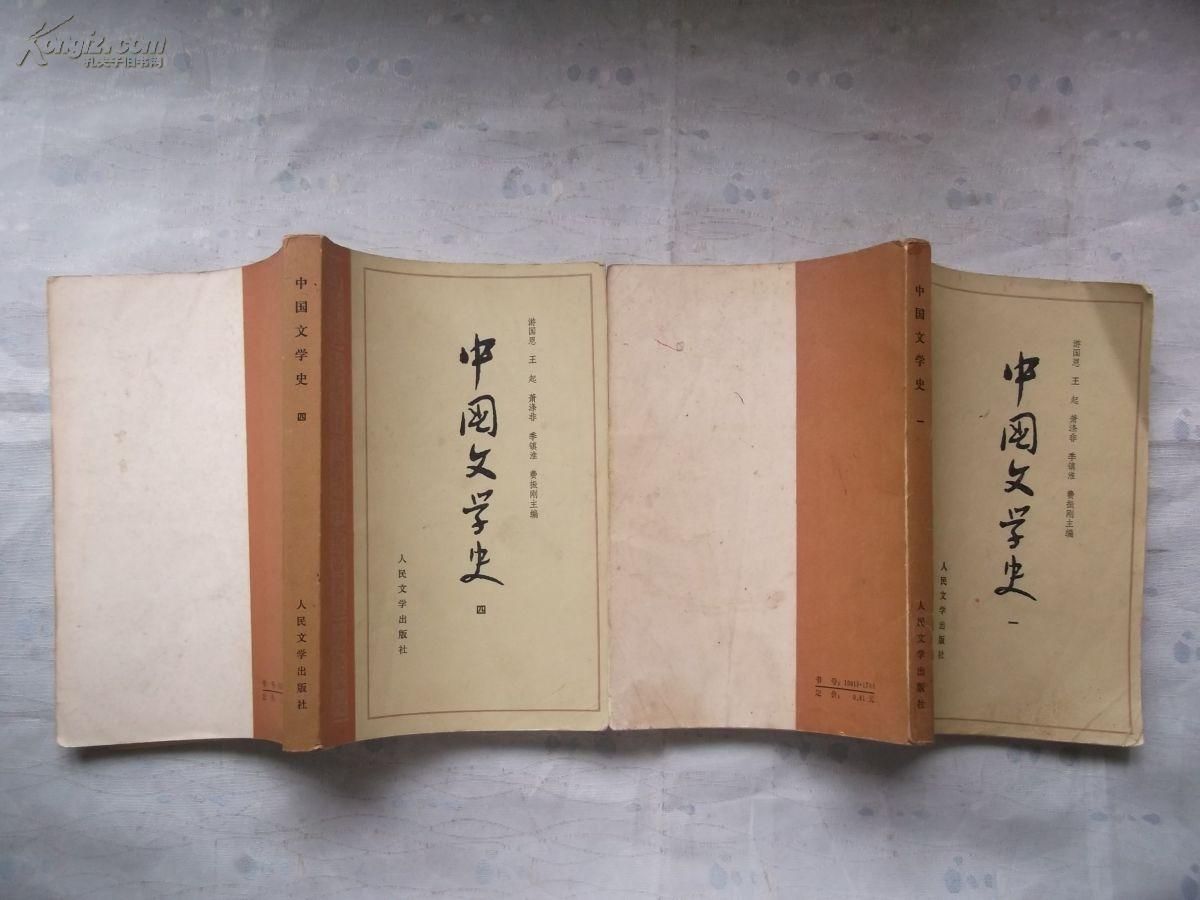 Kongfz.com
孔夫子旧书网
中国文学史 四
人民文学出版社
游国恩 王起 萧涤非 季镇淮 费振刚主编
中国文学史 四
人民文学出版社
中国文学史 一
人民文学出版社
书号:10019·1744
定价: 0.81元
游国恩 王起 萧涤非 季镇淮 费振刚主编
中国文学史 一
人民文学出版社